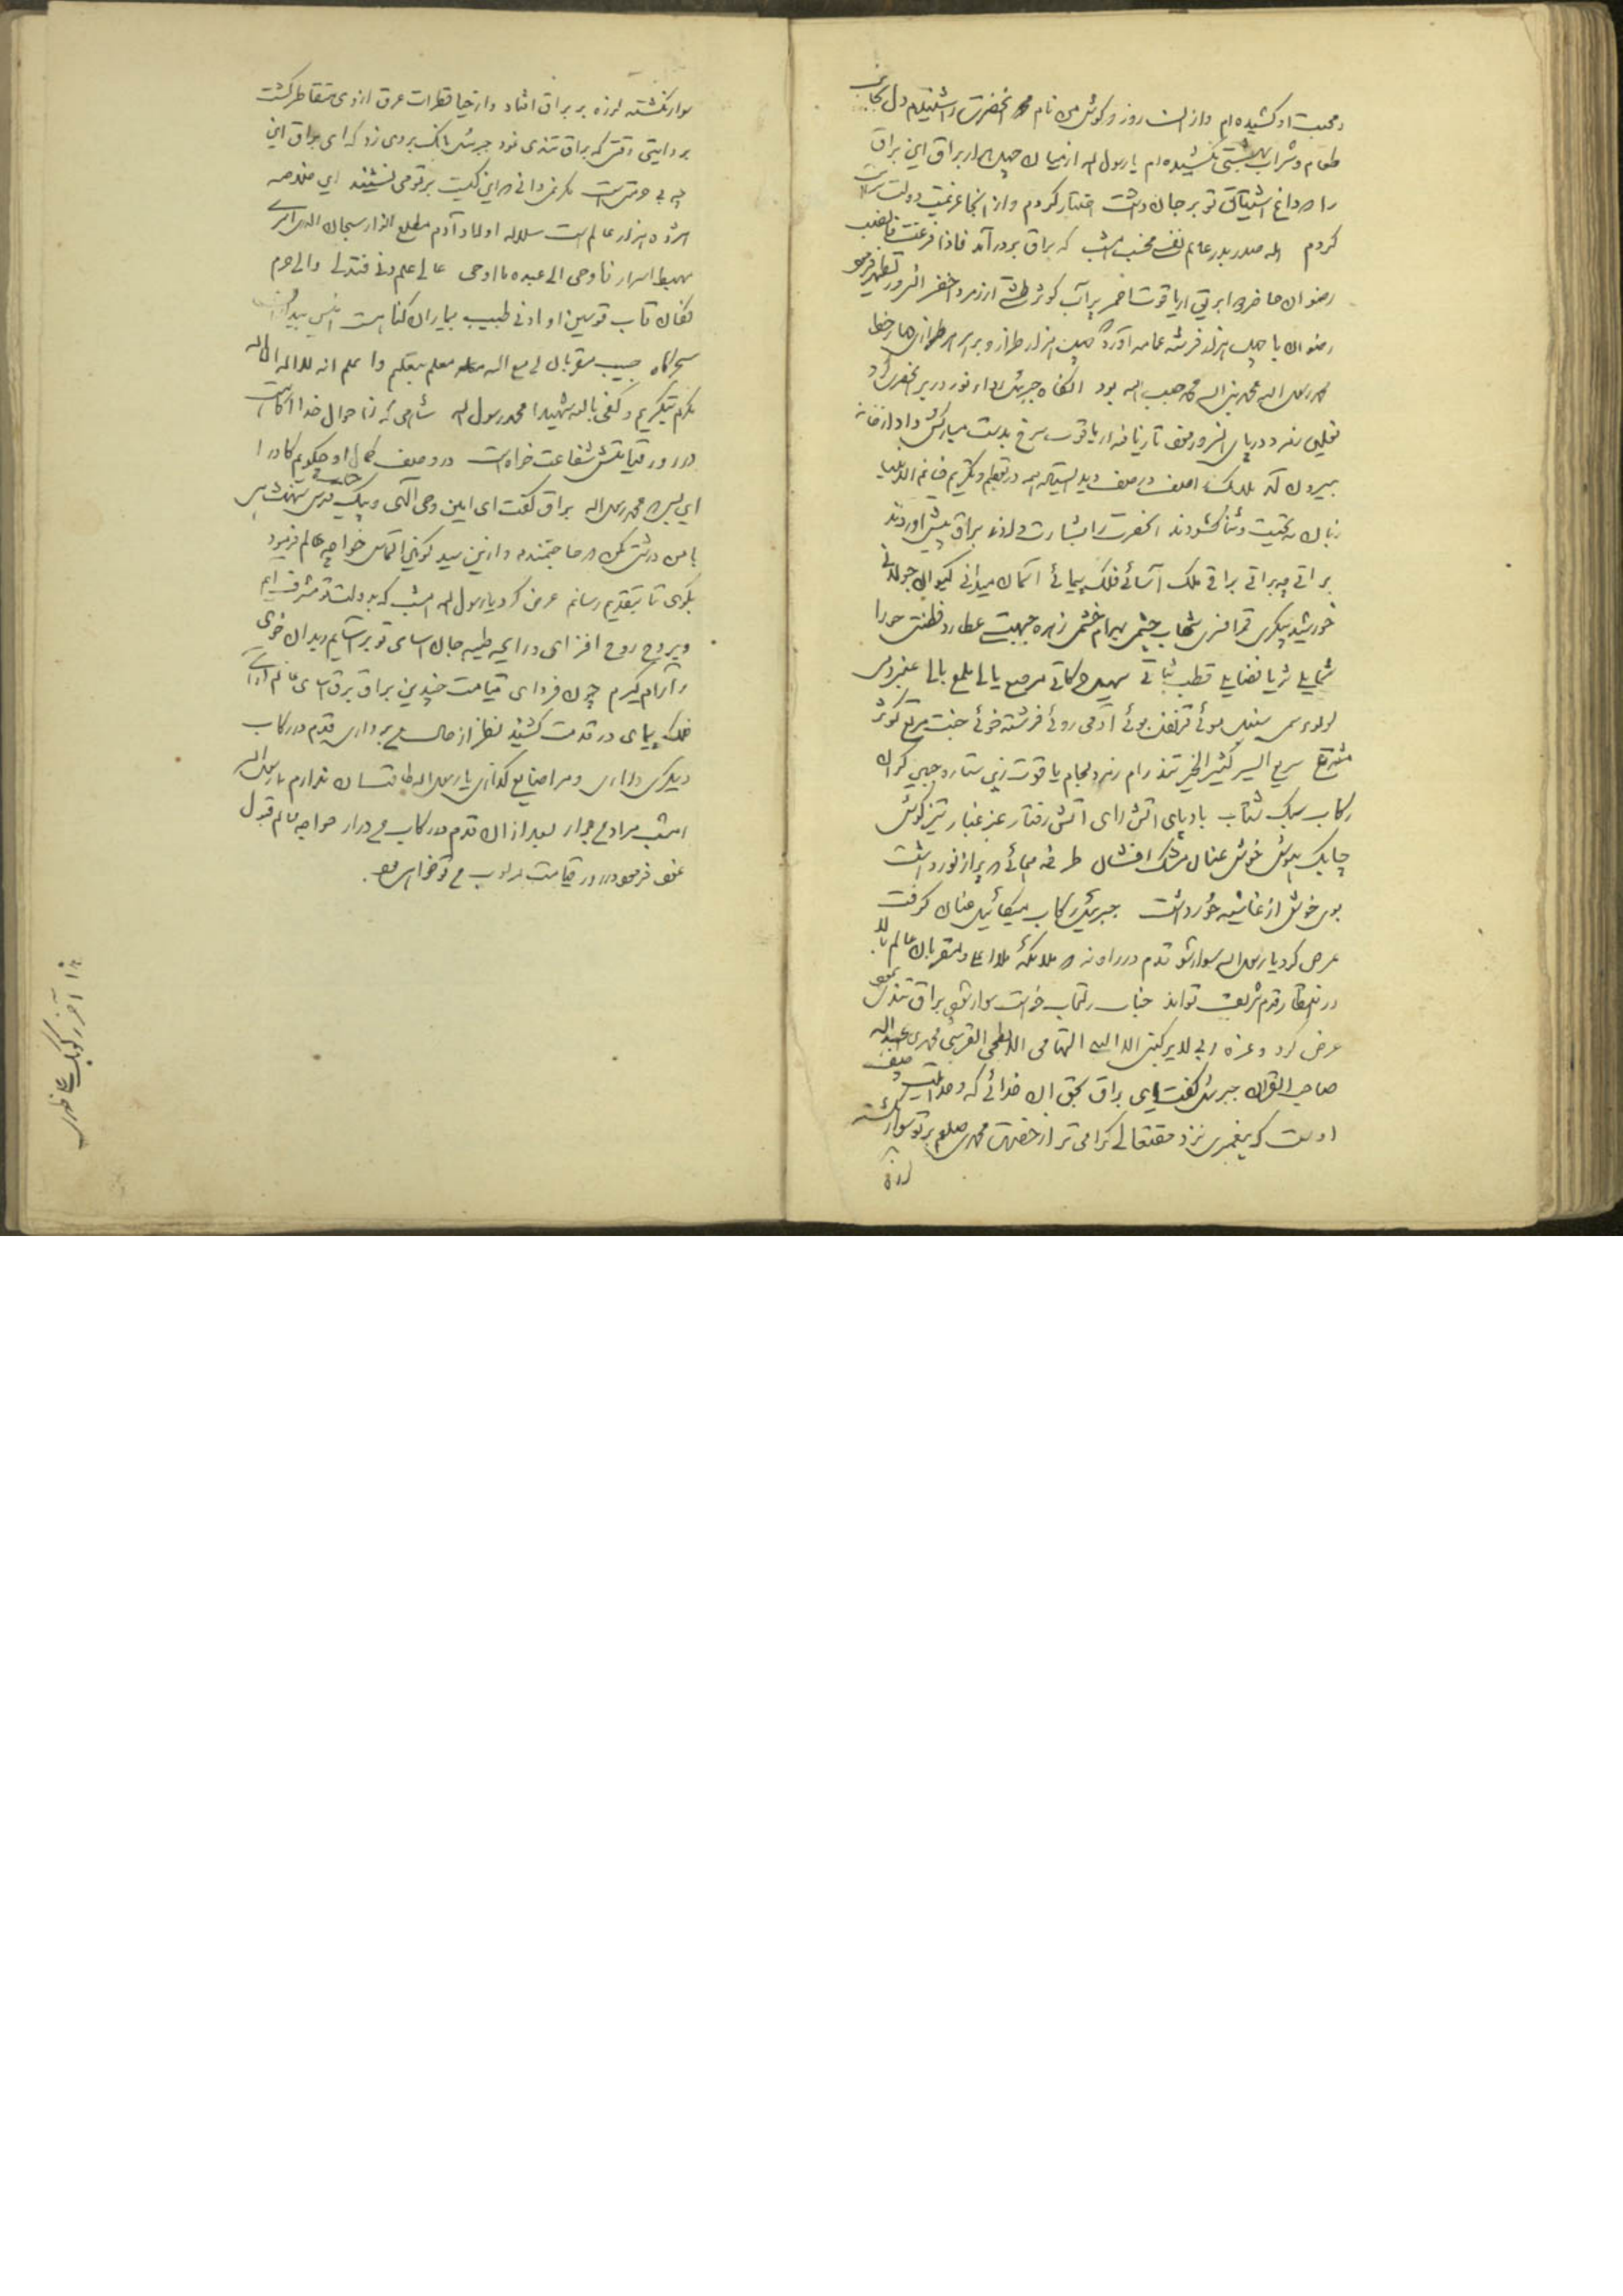 و محبت او کشیده‌ام و ازان روز در گوش من نام آنحضرت را شنیدم دل بجای
طعام و شراب بهشتی نکشیده‌ام یا رسول الله از میان چهل هزار براق این براق
را که داغ اشتیاق تو بر جان داشت اختیار کردم و از آنجا عزیمت دولت
کردم ای صدر بدر عالم نفسے مخسب امشب که براق بر در آمد فاذا فرغت فانصب
رضوان حاضر ابریق از یاقوت احمر پر آب کوثر طشتی از زمرد اخضر
رضوان با چهل هزار فرشته عمامه آورد چهل هزار طراز و بر هر طرازی چهار خط
محمد رسول الله محمد نبی الله محمد حبیب الله بود آنگاه جبرئیل رداء نور در بر آنحضرت
نعلین در پای آنسرور تازیانه از یاقوت سرخ بدست مبارکش داد از خانه
بیرون آمد ملایک صف در صف دید ایستاده همه در تعظیم و تکریم
زبان به تحیت و ثنا گشودند آنحضرت را بشارت دادند براق پیش آوردند
براقے چه براقے براقے ملک آسائے فلک پیمائے آسمان میدانے کیوان جولانے
خورشید پیکرے قمر افسرے شهاب چشمے بهرام خشمے زهره جبهتے عطارد فطنتے جوزا
شمایلے ثریا فضایلے قطب ثباتے سهیل حرکاتے مرصع یالے ملمع بالے عنبر دمے
لولو سمے سنبل موئے قرنفل بوئے آدمی روئے فرشته خوئے جنت مرتع کوثر
مشرع سریع السیر کثیر الخیر تند رام زبرجد لجام یاقوت زین ستاره جبین گران
رکاب سبک شتاب بادپای آتش رای آتش رفتار عنبر غبار تیزگوش
چابک بهوش خوش عنان مشک افشان طرفه همائے پر از نور داشت
بوی خوش از غاشیه حور داشت جبرئیل رکاب میکائیل عنان گرفت
عرض کرد یا رسول الله سوار شو قدم در راه نه که ملائکه ملاء اعلی و مقربان عالم بالا
در انتظار قدوم شریف تواند جناب رسالتماب خواست سوار شود براق تندی نمود
عرض کرد و عزة ربی لا یرکبنی الا النبی التهامی الابطحی القرشی محمد بن عبدالله
صاحب القرآن جبرئیل گفت ای براق بحق آن خدائے که وحدانیت صفت
اوست که پیغمبری نزد حقتعالی گرامی تر از حضرت محمد صلعم بر تو سوار نگشته
لرزه
سوار نگشته لرزه بر براق افتاد و از حیا قطرات عرق از وی متقاطر گشت
بروایتی وقتی که براق تندی نمود جبرئیل بانک بر وی زد که ای براق این
چه بی حرمتی است مگر نمیدانی که این کیست بر تو می نشیند این خلاصه
هژده هزار عالم است سلاله اولاد آدم مطلع انوار سبحان الذی اسری
مهبط اسرار فاوحی الی عبده ما اوحی عالی علم دنی فتدلی والی حرم
فکان قاب قوسین او ادنی طبیب بیماران گناه است انیس
سحرگاه حبیب مقربان لی مع الله معلم بتعلیم و اعلم انه لا اله الا الله
مکرم بتکریم و کفی بالله شهیدا محمد رسول الله شاهی که ز احوال خدا آگاهست
در روز قیامتش شفاعت خواهست در وصف کمال او چگویم کاو را
این بس که محمد رسول الله براق گفت ای امین وحی الهی و پیک قدس شهنشاهی
با من درشتی مکن که حاجتمندم و ازین سید کونین التماس خواجه عالم فرمود
بگوی تا بتقدیم رسانم عرض کرد یا رسول الله امشب که بدولت تو مشرف ایم
و بروح روح افزای و رایحه طیبه جان آسای تو بر آسایم و بدان خوی
و آرام گیرم چون فردای قیامت چندین براق برق آسای عالم آرائے
فلک پیمای در قدمت کشند نظر از حال من برداری قدم در رکاب
دیگری در آری و مرا ضایع گذاری یا رسول الله طاقت آن ندارم یا رسول الله
امشب مراد من برآر بعد از آن قدم در رکاب من درآر خواجه عالم قبول
عفو فرمود در روز قیامت مرکوب من تو خواهی بود